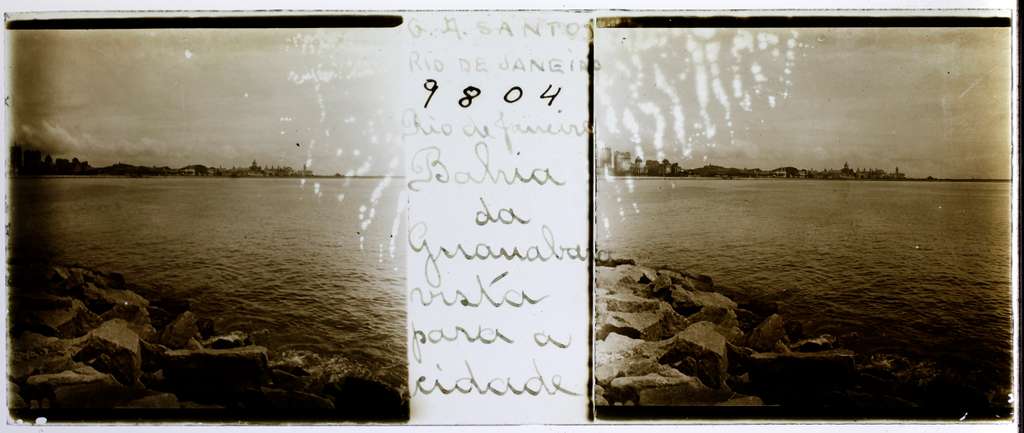 G. A. SANTOS
RIO DE JANEIRO
9804
Rio de Janeiro
Bahia
da
Guanabara
vista
para a
cidade